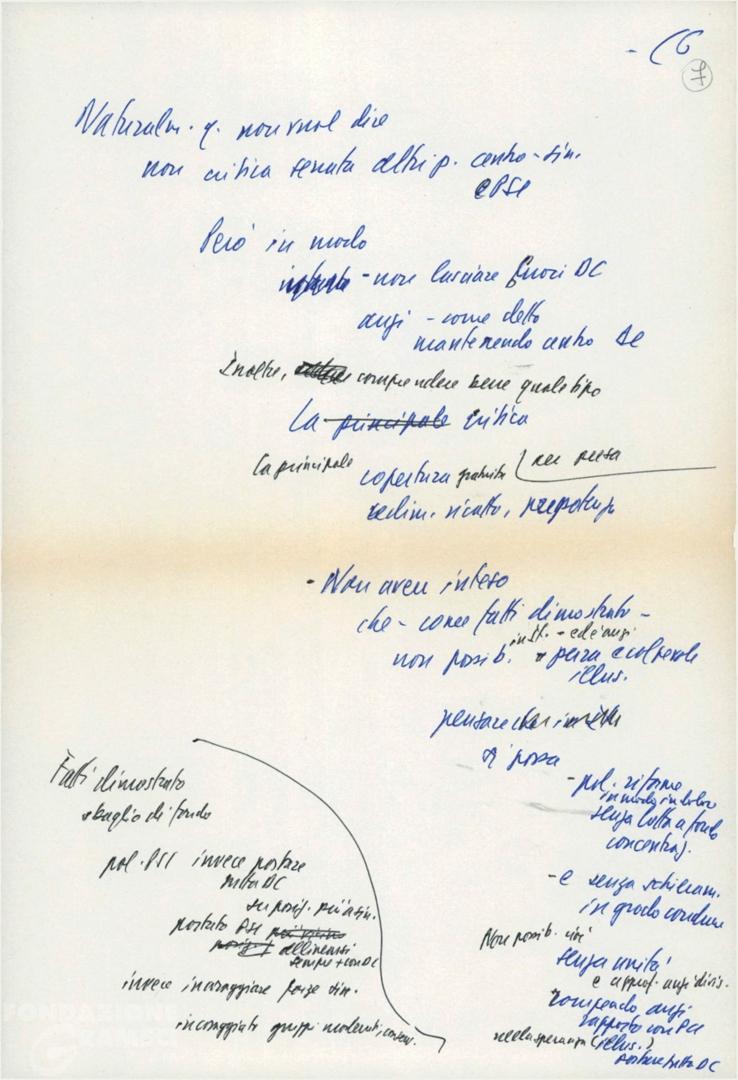 - (6
7
Naturalm. q. non vuol dire
non critica serrata altri p. centro-sin.
e PSI
Però in modo
- non lasciare fuori DC
anzi - come detto
mantenendo centro
Inoltre, comprendere bene quale tipo
La principale critica
la principale
copertura gratuita
per presa
cedim. ricatto, prepotenza
- Non aver inteso
che - come fatti dimostrato -
ed è anzi
non possib. pura e colpevole
illus.
pensare che
si possa
- pol. riforme
in modo indolore
senza lotta a fondo
concentraz.
- e senza schieram.
in grado condurre
Non possib. cioè
senza unità
e approf. anzi divis.
rompendo anzi
rapporto con PCI
nella speranza (illus.)
portare tutta DC
Fatti dimostrato
sbaglio di fondo
pol. PSI invece portare
tutta DC
su posiz. più a sin.
portato PSI più
posiz. allinearsi
sempre + con DC
invece incoraggiare forze sin.
incoraggiato gruppi moderati, conserv.
FONDAZIONE